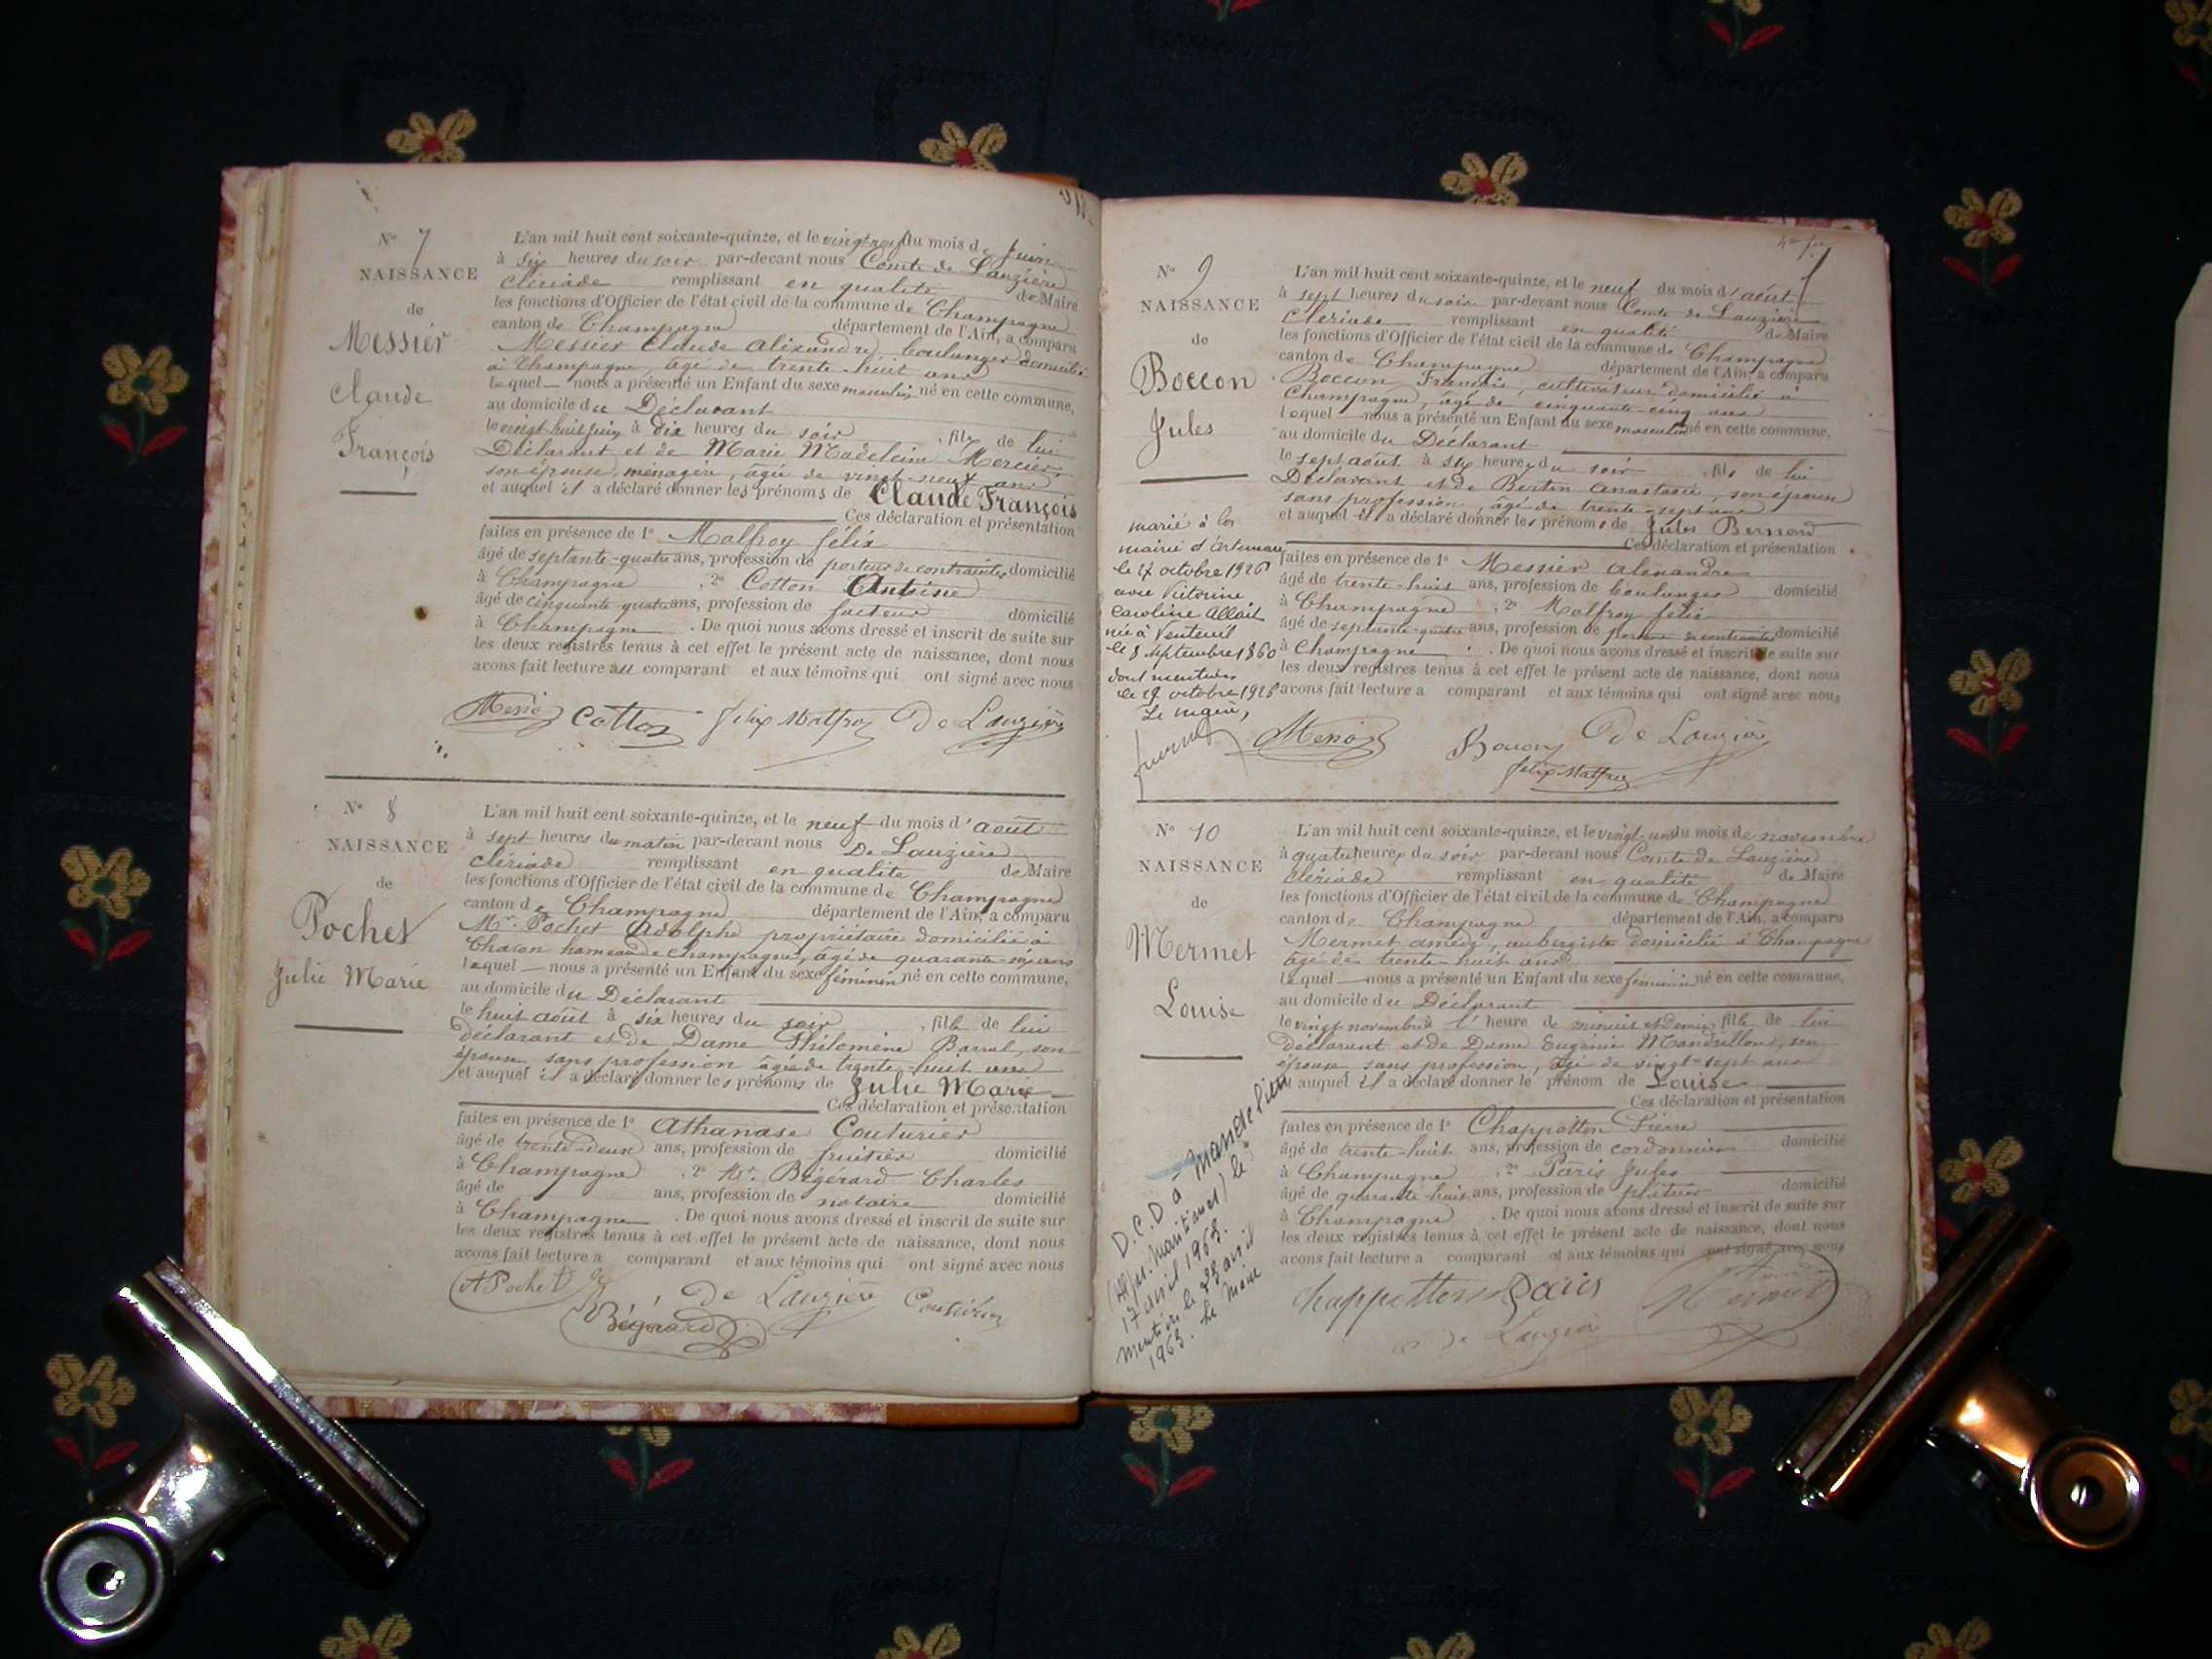 N° 7
NAISSANCE
de
Messier
Claude
François
L'an mil huit cent soixante-quinze, et le vingt-neuf du mois de Juin
à six heures du soir par-devant nous Comte de Lauzière
Clériade remplissant en qualité de Maire
les fonctions d'Officier de l'état civil de la commune de Champagne
canton de Champagne département de l'Ain, a comparu
Messier Claude Alixandre, boulanger domicilié
à Champagne, âgé de trente-huit ans
lequel nous a présenté un Enfant du sexe masculin né en cette commune,
au domicile du Déclarant
le vingt huit Juin à dix heures du soir, fils de lui
Déclarant et de Marie Madeleine Mercier
son épouse, ménagère, âgée de vingt-neuf ans
et auquel il a déclaré donner les prénoms de Claude François
Ces déclaration et présentation
faites en présence de 1° Malfroy félix
âgé de septante-quatre ans, profession de porteur de contraintes domicilié
à Champagne, 2° Cotton Antoine
âgé de cinquante-quatre ans, profession de facteur domicilié
à Champagne. De quoi nous avons dressé et inscrit de suite sur
les deux registres tenus à cet effet le présent acte de naissance, dont nous
avons fait lecture au comparant et aux témoins qui ont signé avec nous
Cotton félix Malfroy De Lauzière
N° 8
NAISSANCE
de
Pochet
Julie Marie
L'an mil huit cent soixante-quinze, et le neuf du mois d'août
à sept heures du matin par-devant nous De Lauzière
clériade remplissant en qualité de Maire
les fonctions d'Officier de l'état civil de la commune de Champagne
canton de Champagne département de l'Ain, a comparu
Mr. Pochet Adolphe propriétaire domicilié à
hameau de Champagne, âgé de quarante-six ans
lequel nous a présenté un Enfant du sexe féminin né en cette commune,
au domicile du Déclarant
le huit août à six heures du soir, fille de lui
déclarant et de Dame Philomène Barral, son
épouse, sans profession âgée de trente-huit ans
et auquel il a déclaré donner les prénoms de Julie Marie
Ces déclaration et présentation
faites en présence de 1° Athanase Couturier
âgé de trente-deux ans, profession de fruitier domicilié
à Champagne, 2° Mr. Bégérard Charles
âgé de ans, profession de notaire domicilié
à Champagne. De quoi nous avons dressé et inscrit de suite sur
les deux registres tenus à cet effet le présent acte de naissance, dont nous
avons fait lecture a comparant et aux témoins qui ont signé avec nous
A Pochet De Lauzière Couturier
Bégérard
N° 9
NAISSANCE
de
Boccon
Jules
marié à la
mairie d'
le 27 octobre 1926
avec Victorine
Caroline Allait
née à Venteuil
le 8 septembre 1860
dont mention
le 27 octobre 1926
Le maire,
L'an mil huit cent soixante-quinze, et le neuf du mois d'août
à sept heures du soir par-devant nous Comte de Lauzière
Clériade remplissant en qualité de Maire
les fonctions d'Officier de l'état civil de la commune de Champagne
canton de Champagne département de l'Ain, a comparu
Boccon François, cultivateur domicilié à
Champagne, âgé de cinquante-cinq ans
lequel nous a présenté un Enfant du sexe masculin né en cette commune,
au domicile du Déclarant
le sept août à six heures du soir, fils de lui
Déclarant et de Bertin Anastasie, son épouse
sans profession, âgée de trente-sept ans
et auquel il a déclaré donner les prénoms de Jules Bernard
Ces déclaration et présentation
faites en présence de 1° Messier Alexandre
âgé de trente-huit ans, profession de boulanger domicilié
à Champagne, 2° Malfroy félix
âgé de septante-quatre ans, profession de porteur de contraintes domicilié
à Champagne. De quoi nous avons dressé et inscrit de suite sur
les deux registres tenus à cet effet le présent acte de naissance, dont nous
avons fait lecture a comparant et aux témoins qui ont signé avec nous
Boccon De Lauzière
félix Malfroy
N° 10
NAISSANCE
de
Mermet
Louise
D.C.D à Mandelieu
(Alpes Maritimes) le
17 avril 1963.
mention le 23 avril
1963. Le Maire
L'an mil huit cent soixante-quinze, et le vingt-un du mois de novembre
à quatre heures du soir par-devant nous Comte de Lauzière
Clériade remplissant en qualité de Maire
les fonctions d'Officier de l'état civil de la commune de Champagne
canton de Champagne département de l'Ain, a comparu
Mermet Amédé, aubergiste domicilié à Champagne
âgé de trente-huit ans
lequel nous a présenté un Enfant du sexe féminin né en cette commune,
au domicile du Déclarant
le vingt novembre à l'heure de minuit et demie, fille de lui
déclarant et de Dame Eugénie Mandrillon, son
épouse, sans profession, âgée de vingt-sept ans
et auquel il a déclaré donner le prénom de Louise
Ces déclaration et présentation
faites en présence de 1° Chappotton Pierre
âgé de trente-huit ans, profession de cordonnier domicilié
à Champagne, 2° Paris Jules
âgé de quarante-huit ans, profession de plâtrier domicilié
à Champagne. De quoi nous avons dressé et inscrit de suite sur
les deux registres tenus à cet effet le présent acte de naissance, dont nous
avons fait lecture a comparant et aux témoins qui ont signé avec nous
Chappotton Paris Mermet
De Lauzière